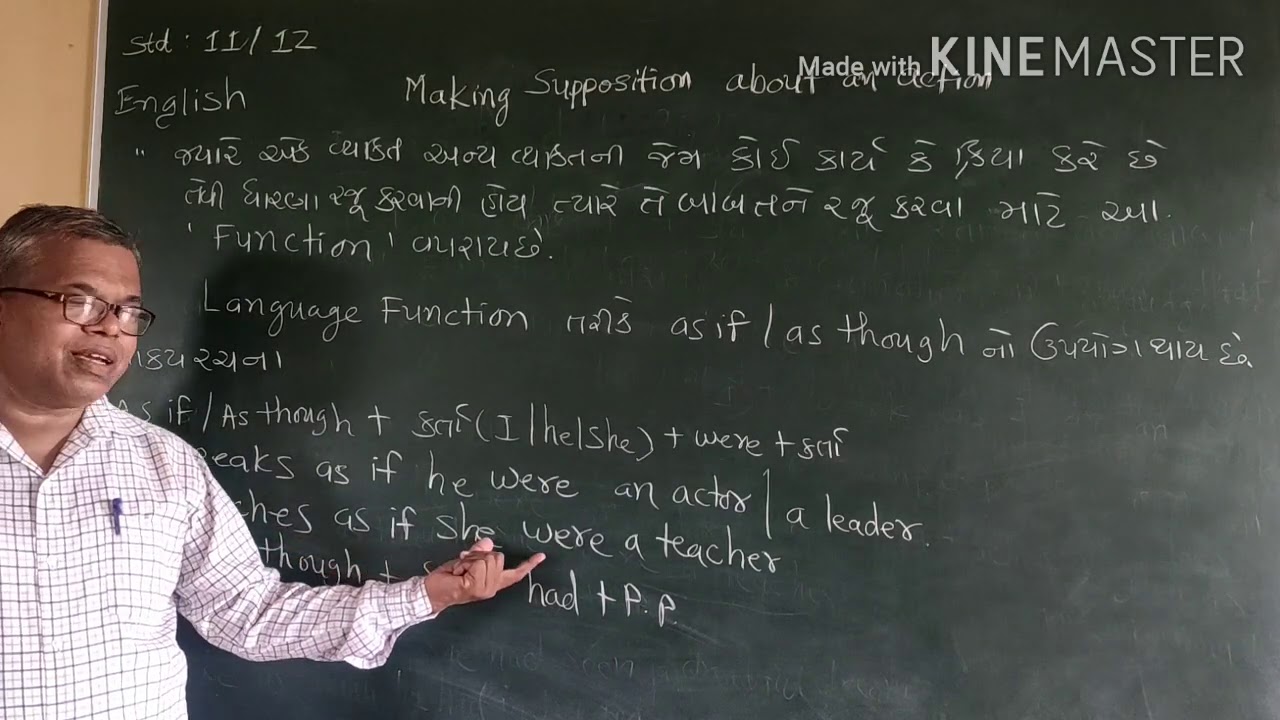 Std : 11/12
Made with KINEMASTER
English
Making Supposition about an action
" જ્યારે એક વ્યક્તિ અન્ય વ્યક્તિની જેમ કોઈ કાર્ય કે ક્રિયા કરે છે
તેવી ધારણા રજૂ કરવાની હોય ત્યારે તે બાબતને રજૂ કરવા માટે આ.
'Function' વપરાય છે.
Language Function તરીકે as if / as though નો ઉપયોગ થાય છે.
As if / As though + કર્તા (I/he/she) + were + કર્તા
as if he were an actor / a leader.
as if she were a teacher
though + had + P.P.